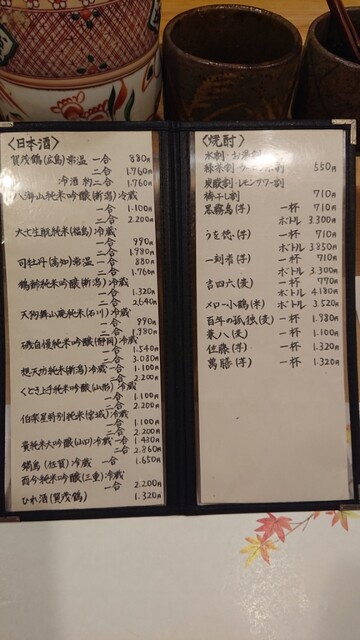 〈日本酒〉
賀茂鶴(広島)常温 一合 880円
二合 1.760円
冷酒 約二合 1.760円
八海山純米吟醸(新潟)冷蔵
一合 1.100円
二合 2.200円
大七生酛純米(福島)冷蔵
一合 990円
二合 1.980円
司牡丹(高知)常温 一合 880円
二合 1.760円
鶴齢純米吟醸(新潟)冷蔵
一合 1.320円
二合 2.640円
天狗舞山廃純米(石川)冷蔵
一合 990円
二合 1.980円
磯自慢純米吟醸(静岡)冷蔵
一合 1.540円
二合 3.080円
想天坊純米(新潟)冷蔵 一合 1.100円
二合 2.200円
くどき上手純米吟醸(山形)冷蔵
一合 1.100円
二合 2.200円
伯楽星特別純米(宮城)冷蔵
一合 1.100円
二合 2.200円
貴純米大吟醸(山口)冷蔵 一合 1.430円
二合 2.860円
鍋島(佐賀)冷蔵 一合 1.650円
而今純米吟醸(三重)冷蔵
一合 2.200円
ひれ酒(賀茂鶴) 1.320円
〈焼酎〉
水割・お湯割
緑茶割 550円
炭酸割・レモンサワー割
梅干し割 710円
黒霧島(芋) 一杯 710円
ボトル 3.300円
一杯 710円
ボトル 3.850円
一刻者(芋) 一杯 710円
ボトル 3.300円
吉四六(麦) 一杯 770円
ボトル 4.180円
メロー小鶴(米) ボトル 3.520円
百年の孤独(麦)一杯 1.980円
兼八(麦) 一杯 1.100円
佐藤(芋) 一杯 1.320円
萬膳(芋) 一杯 1.320円